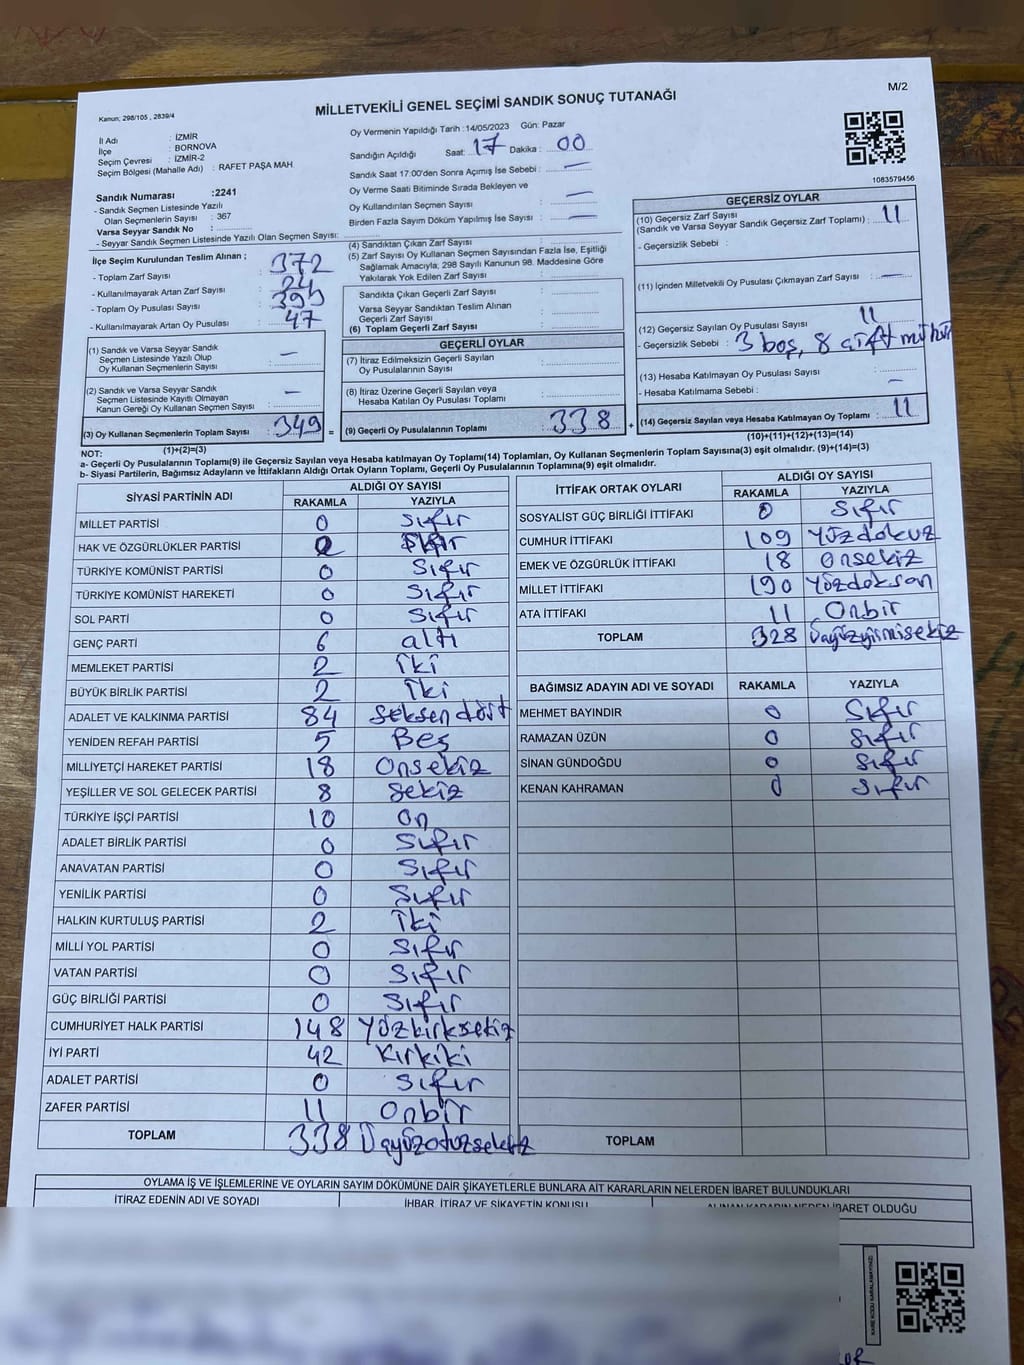 M/2
MİLLETVEKİLİ GENEL SEÇİMİ SANDIK SONUÇ TUTANAĞI
Kanun; 298/105 , 2839/4
İl Adı : İZMİR
İlçe : BORNOVA
Seçim Çevresi : İZMİR-2
Seçim Bölgesi (Mahalle Adı) : RAFET PAŞA MAH
Oy Vermenin Yapıldığı Tarih :14/05/2023 Gün: Pazar
Sandığın Açıldığı Saat: 17 Dakika : 00
Sandık Saat 17:00'den Sonra Açımış İse Sebebi : —
Oy Verme Saati Bitiminde Sırada Bekleyen ve
Oy Kullandırılan Seçmen Sayısı : —
Birden Fazla Sayım Döküm Yapılmış İse Sayısı : —
1083579456
Sandık Numarası :2241
- Sandık Seçmen Listesinde Yazılı
Olan Seçmenlerin Sayısı : 367
Varsa Seyyar Sandık No :
- Seyyar Sandık Seçmen Listesinde Yazılı Olan Seçmen Sayısı:
İlçe Seçim Kurulundan Teslim Alınan ;
- Toplam Zarf Sayısı : 372
- Kullanılmayarak Artan Zarf Sayısı : 24
- Toplam Oy Pusulası Sayısı :
- Kullanılmayarak Artan Oy Pusulası : 47
(1) Sandık ve Varsa Seyyar Sandık
Seçmen Listesinde Yazılı Olup
Oy Kullanan Seçmenlerin Sayısı : —
(2) Sandık ve Varsa Seyyar Sandık
Seçmen Listesinde Kayıtlı Olmayan
Kanun Gereği Oy Kullanan Seçmen Sayısı : —
(3) Oy Kullanan Seçmenlerin Toplam Sayısı : 349
(1)+(2)=(3)
(4) Sandıktan Çıkan Zarf Sayısı :
(5) Zarf Sayısı Oy Kullanan Seçmen Sayısından Fazla İse, Eşitliği
Sağlamak Amacıyla, 298 Sayılı Kanunun 98. Maddesine Göre
Yakılarak Yok Edilen Zarf Sayısı :
Sandıkta Çıkan Geçerli Zarf Sayısı :
Varsa Seyyar Sandıktan Teslim Alınan
Geçerli Zarf Sayısı :
(6) Toplam Geçerli Zarf Sayısı :
GEÇERLİ OYLAR
(7) İtiraz Edilmeksizin Geçerli Sayılan
Oy Pusulalarının Sayısı :
(8) İtiraz Üzerine Geçerli Sayılan veya
Hesaba Katılan Oy Pusulası Toplamı :
(9) Geçerli Oy Pusulalarının Toplamı : 338
GEÇERSİZ OYLAR
(10) Geçersiz Zarf Sayısı
(Sandık ve Varsa Seyyar Sandık Geçersiz Zarf Toplamı) : 11
- Geçersizlik Sebebi :
(11) İçinden Milletvekili Oy Pusulası Çıkmayan Zarf Sayısı : —
(12) Geçersiz Sayılan Oy Pusulası Sayısı : 11
- Geçersizlik Sebebi : 3 boş, 8 çift mühür
(13) Hesaba Katılmayan Oy Pusulası Sayısı : —
- Hesaba Katılmama Sebebi :
(14) Geçersiz Sayılan veya Hesaba Katılmayan Oy Toplamı : 11
(10)+(11)+(12)+(13)=(14)
NOT:
a- Geçerli Oy Pusulalarının Toplamı(9) ile Geçersiz Sayılan veya Hesaba katılmayan Oy Toplamı(14) Toplamları, Oy Kullanan Seçmenlerin Toplam Sayısına(3) eşit olmalıdır. (9)+(14)=(3)
b- Siyasi Partilerin, Bağımsız Adayların ve İttifakların Aldığı Ortak Oyların Toplamı, Geçerli Oy Pusulalarının Toplamına(9) eşit olmalıdır.
SİYASİ PARTİNİN ADI ALDIĞI OY SAYISI
RAKAMLA YAZIYLA
MİLLET PARTİSİ 0 Sıfır
HAK VE ÖZGÜRLÜKLER PARTİSİ 0 Sıfır
TÜRKİYE KOMÜNİST PARTİSİ 0 Sıfır
TÜRKİYE KOMÜNİST HAREKETİ 0 Sıfır
SOL PARTİ 0 Sıfır
GENÇ PARTİ 6 altı
MEMLEKET PARTİSİ 2 iki
BÜYÜK BİRLİK PARTİSİ 2 iki
ADALET VE KALKINMA PARTİSİ 84 Seksen dört
YENİDEN REFAH PARTİSİ 5 Beş
MİLLİYETÇİ HAREKET PARTİSİ 18 Onsekiz
YEŞİLLER VE SOL GELECEK PARTİSİ 8 Sekiz
TÜRKİYE İŞÇİ PARTİSİ 10 On
ADALET BİRLİK PARTİSİ 0 Sıfır
ANAVATAN PARTİSİ 0 Sıfır
YENİLİK PARTİSİ 0 Sıfır
HALKIN KURTULUŞ PARTİSİ 2 iki
MİLLİ YOL PARTİSİ 0 Sıfır
VATAN PARTİSİ 0 Sıfır
GÜÇ BİRLİĞİ PARTİSİ 0 Sıfır
CUMHURİYET HALK PARTİSİ 148 Yüzkırksekiz
İYİ PARTİ 42 Kırkiki
ADALET PARTİSİ 0 Sıfır
ZAFER PARTİSİ 11 Onbir
TOPLAM 338 Üçyüzotuzsekiz
İTTİFAK ORTAK OYLARI ALDIĞI OY SAYISI
RAKAMLA YAZIYLA
SOSYALİST GÜÇ BİRLİĞİ İTTİFAKI 0 Sıfır
CUMHUR İTTİFAKI 109 Yüzdokuz
EMEK VE ÖZGÜRLÜK İTTİFAKI 18 Onsekiz
MİLLET İTTİFAKI 190 Yüzdoksan
ATA İTTİFAKI 11 Onbir
TOPLAM 328 Üçyüzyirmisekiz
BAĞIMSIZ ADAYIN ADI VE SOYADI RAKAMLA YAZIYLA
MEHMET BAYINDIR 0 Sıfır
RAMAZAN ÜZÜN 0 Sıfır
SİNAN GÜNDOĞDU 0 Sıfır
KENAN KAHRAMAN 0 Sıfır
TOPLAM
OYLAMA İŞ VE İŞLEMLERİNE VE OYLARIN SAYIM DÖKÜMÜNE DAİR ŞİKAYETLERLE BUNLARA AİT KARARLARIN NELERDEN İBARET BULUNDUKLARI
İTİRAZ EDENİN ADI VE SOYADI İHBAR, İTİRAZ VE ŞİKAYETİN KONUSU ALINAN KARARIN NEDEN İBARET OLDUĞU